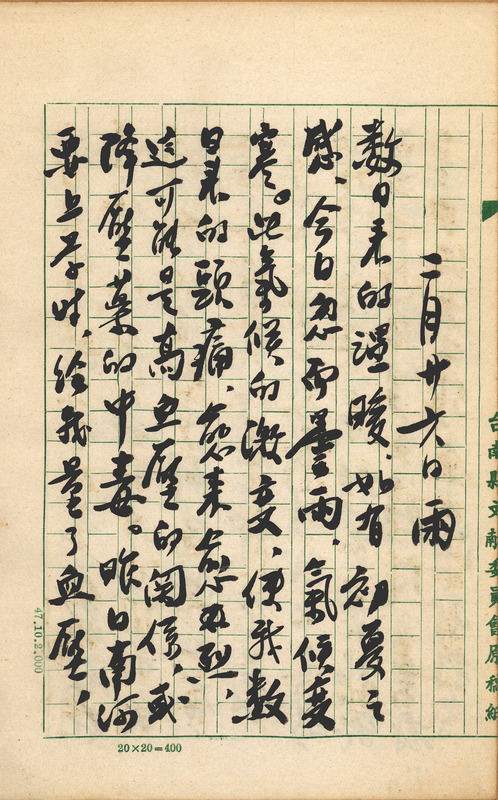 二月廿六日雨
数日来的温暖、如有初夏之
感、今日忽而曇雨、氣候变
寒。此氣候的激变、使我数
日来的頭痛、愈来愈加烈、
這可能是高血壓的関係、或
降壓薬的中毒。昨日南河
要上学时、给我量了血壓、
台南县文献委員會原稿紙
47.10.2.000
20×20=400